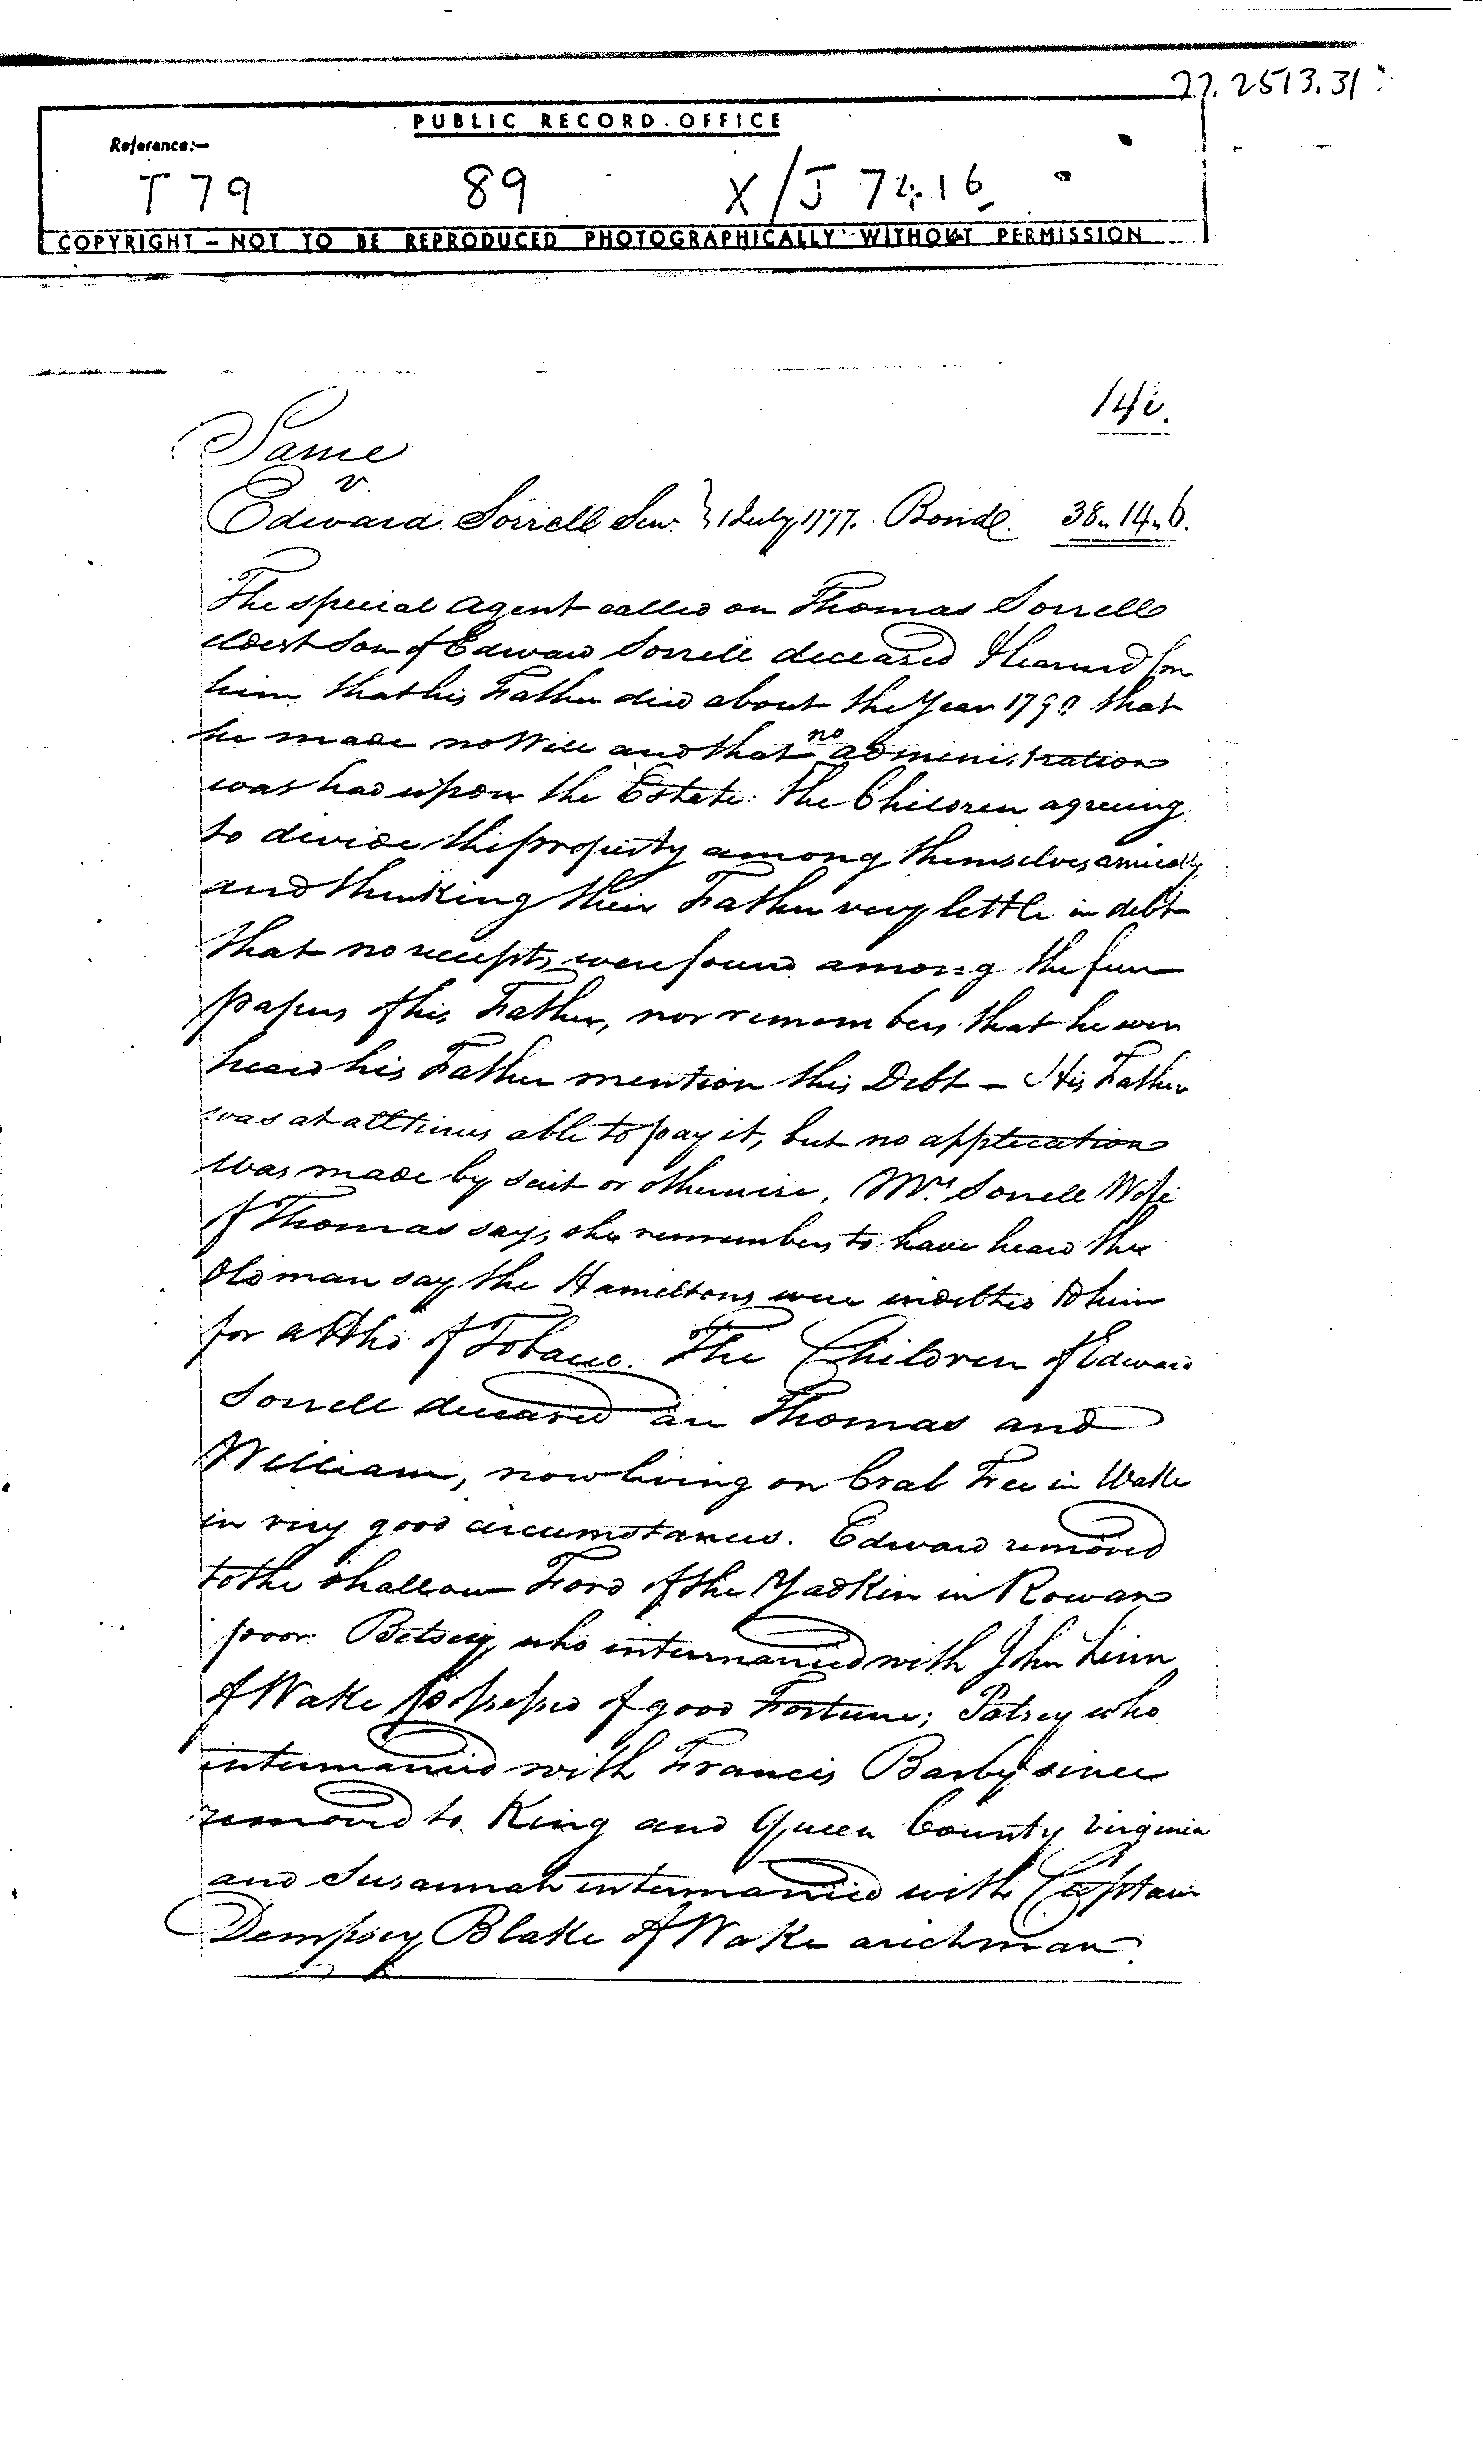 77.2513.31
PUBLIC RECORD OFFICE
Reference:-
T 79 89 X/J 7416
COPYRIGHT - NOT TO BE REPRODUCED PHOTOGRAPHICALLY WITHOUT PERMISSION
Same
v.
Edward Sorrell Senr. } 1 July 1777. Bond. 38..14..6.
The special Agent called on Thomas Sorrell
eldest Son of Edward Sorrell deceased & learned from
him that his Father died about the Year 1790 that
he made no Will and that no administration
was had upon the Estate: the Children agreeing
to divide the property among themselves amicably
and thinking their Father very little in debt
that no receipts were found among the few
papers of his Father, nor remembers that he ever
heard his Father mention this Debt – His Father
was at all times able to pay it, but no application
was made by suit or otherwise. Mrs. Sorrell Wife
of Thomas says, she remembers to have heard the
Old man say the Hamiltons were indebted to him
for a Hhd. of Tobacco. The Children of Edward
Sorrell deceased are Thomas and
William, now living on Crab Tree in Wake
in very good circumstances. Edward removed
to the Shallow Ford of the Yadkin in Rowan
poor. Betsey who intermarried with John Linn
of Wake possessed of good Fortune; Patsey who
intermarried with Francis Barby since
removed to King and Queen County Virginia
and Susannah intermarried with Captain
Dempsey Blake of Wake a rich man.